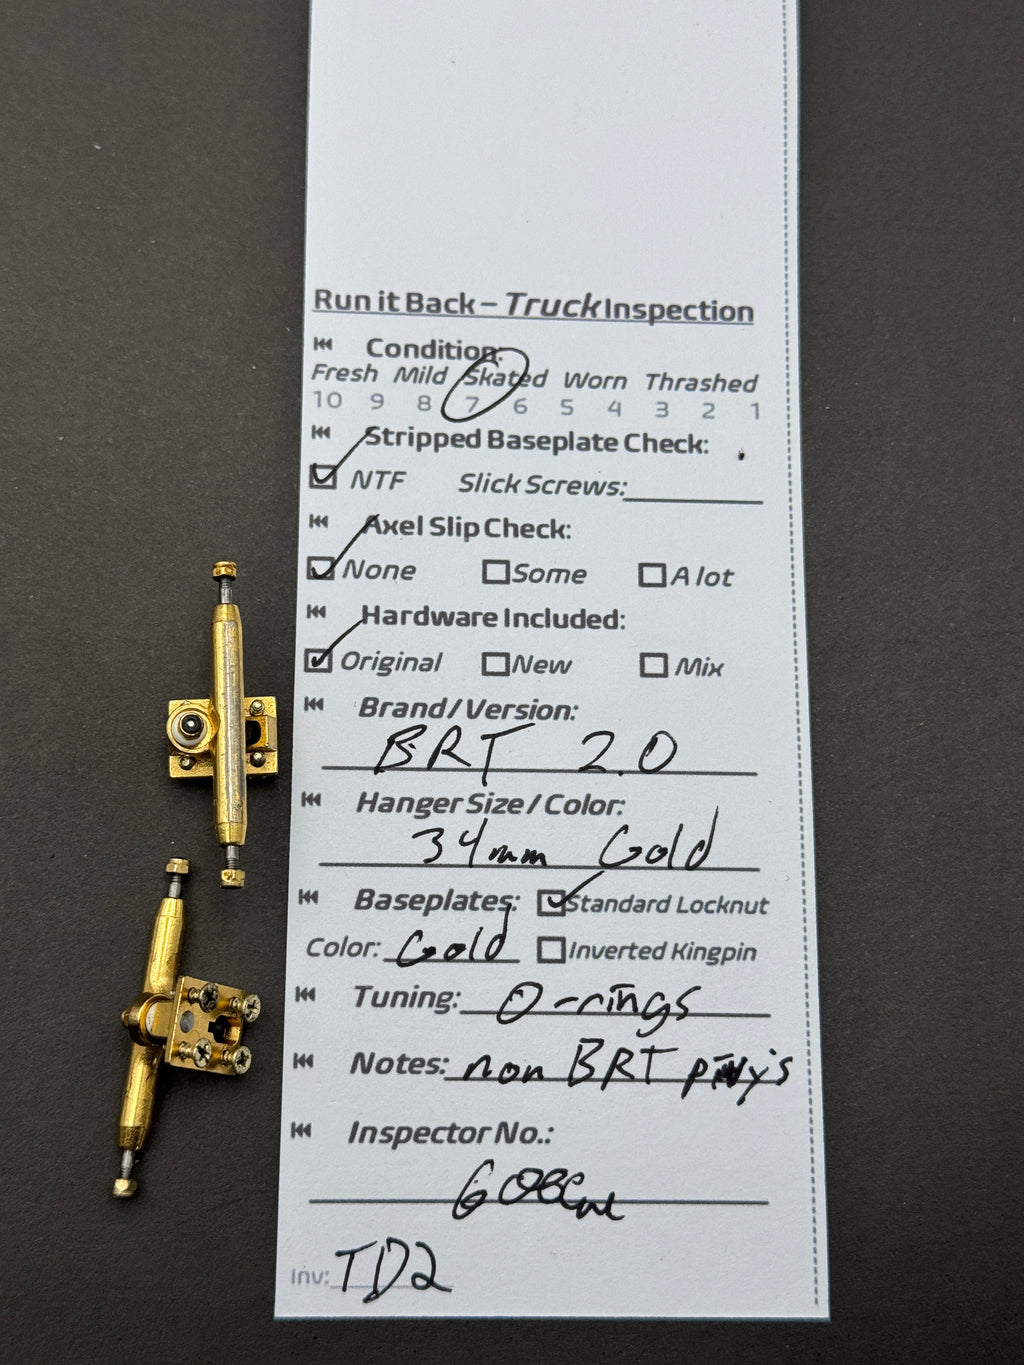 Run it Back – Truck Inspection
Condition:
Fresh Mild Skated Worn Thrashed
10 9 8 7 6 5 4 3 2 1
Stripped Baseplate Check:
NTF Slick Screws:
Axel Slip Check:
None Some A lot
Hardware Included:
Original New Mix
Brand/Version:
BRT 2.0
Hanger Size/Color:
34mm Gold
Baseplates: Standard Locknut
Color: Gold Inverted Kingpin
Tuning: O-rings
Notes: non BRT
Inspector No.:
Inv: TD2